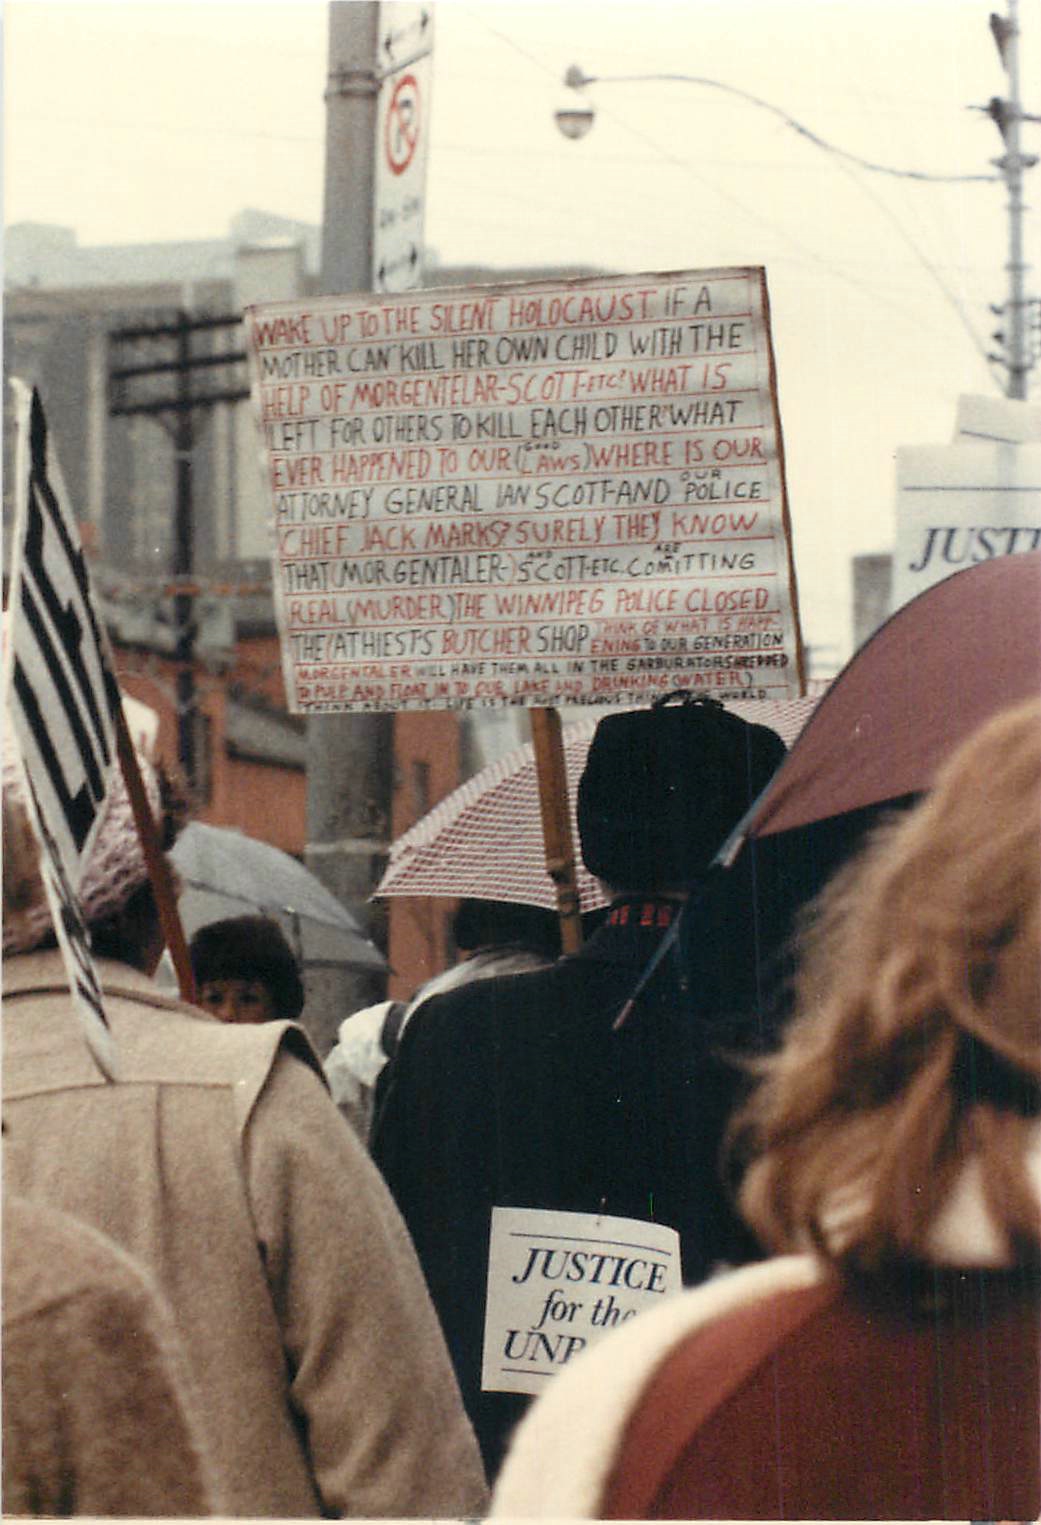 P
WAKE UP TO THE SILENT HOLOCAUST. IF A
MOTHER CAN KILL HER OWN CHILD WITH THE
HELP OF MORGENTELAR-SCOTT-ETC! WHAT IS
LEFT FOR OTHERS TO KILL EACH OTHER! WHAT
EVER HAPPENED TO OUR (GOOD LAWS) WHERE IS OUR
ATTORNEY GENERAL IAN SCOTT-AND OUR POLICE
CHIEF JACK MARKS? SURELY THEY KNOW
THAT (MORGENTALER-) AND SCOTT-ETC. ARE COMITTING
REAL (MURDER) THE WINNIPEG POLICE CLOSED
THE (ATHIEST'S BUTCHER SHOP THINK OF WHAT IS HAPP-
ENING TO OUR GENERATION
MORGENTALER WILL HAVE THEM ALL IN THE GARBURATOR SHREDDED
TO PULP AND FLOAT IN TO OUR LAKE AND DRINKING (WATER)
THINK ABOUT IT. LIFE IS THE MOST PRECIOUS THING WORLD
JUSTI
JUSTICE
for the
UNB